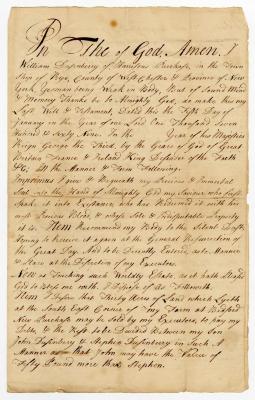 In The of God Amen. I
William Dusenbery of Harrisons Purchase, in the Town
Ship of Rye, County of West Chester & Province of New
York, Yeoman being Weak in Body, but of Sound Mind
& Memory Thanks be to Almighty God, do make this my
Last Will & Testament Dated this the First Day of
January in the Year of our Lord One Thousand Seven
Hundred & Sixty Nine. In the Year of his Majesties
Reign George the Third, by the Grace of God of Great
Britain France & Ireland King Defender of the Faith
&c, in the Manner & Form Following.
Imprimis I give & Recommend my Precious & Immortal
Soul into the Hand of Almighty God my Saviour who first
Spake it into Existance who has Redeemed it with his
most Precious Blood, & whose Sole & Indisputable Property
it is. Item Recommend my Body to the Silent Dust,
hoping to Receive it again at the General Resurrection of
the Great Day. And to be Decently Enterred into Manner
& Place at the Discretion of my Executors.
Now as Touching such Worldly Estate, as it hath Pleased
God to bless me with, I Dispose of as Followeth.
Item I Desire that Thirty Acres of Land which Lyeth
at the South East Corner of my Farm at Bedford
New Purchase may be Sold by my Executors, to pay my
Debts, & the Rest to be Divided Between my Son
John Dusenbery & Stephen Dusenbery in Such A
Manner as that John may have the Value of
Fifty Pound more than Stephen.